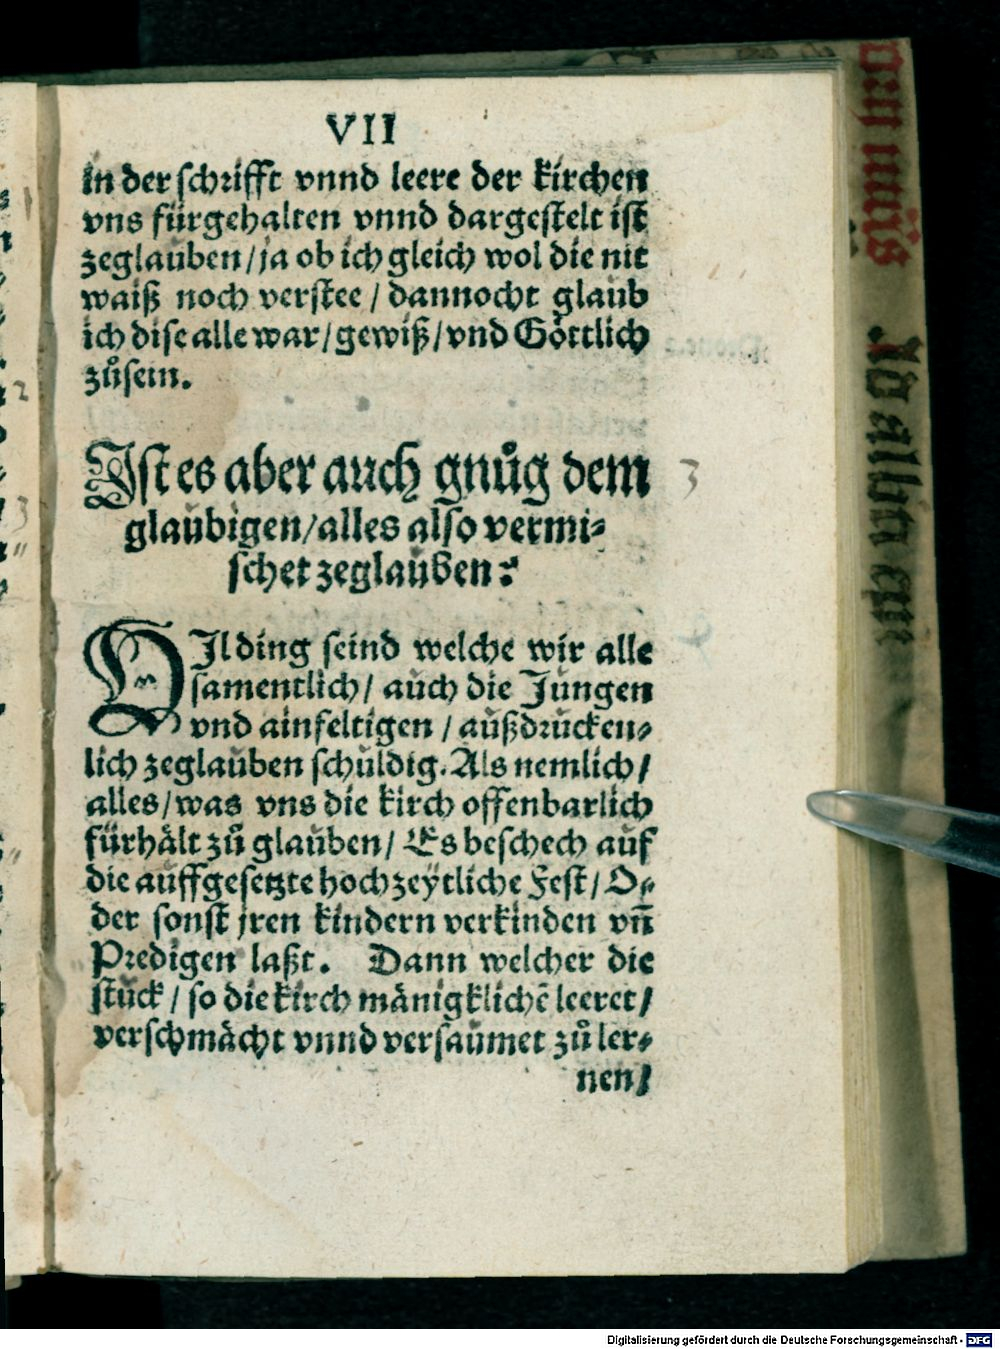 VII
in der schrifft vnnd leere der kirchen
vns fürgehalten vnnd dargestelt ist
zeglauben/ja ob ich gleich wol die nit
waiß noch verstee / dannocht glaub
ich dise alle war/gewiß/vnd Göttlich
zůsein.
Ist es aber auch gnůg dem
3
glaubigen/alles also vermi-
schet zeglauben?
VIl ding seind welche wir alle
samentlich/ auch die Jungen
vnd ainfeltigen / außdrucken-
lich zeglauben schuldig. Als nemlich/
alles/was vns die kirch offenbarlich
fürhält zů glauben/ Es beschech auf
die auffgesetzte hochzeytliche Fest/ O-
der sonst jren kindern verkinden vñ
Predigen laßt. Dann welcher die
stuck / so die kirch mänigklichē leeret/
verschmächt vnnd versaumet zů ler-
nen/
Digitalisierung gefördert durch die Deutsche Forschungsgemeinschaft - DFG